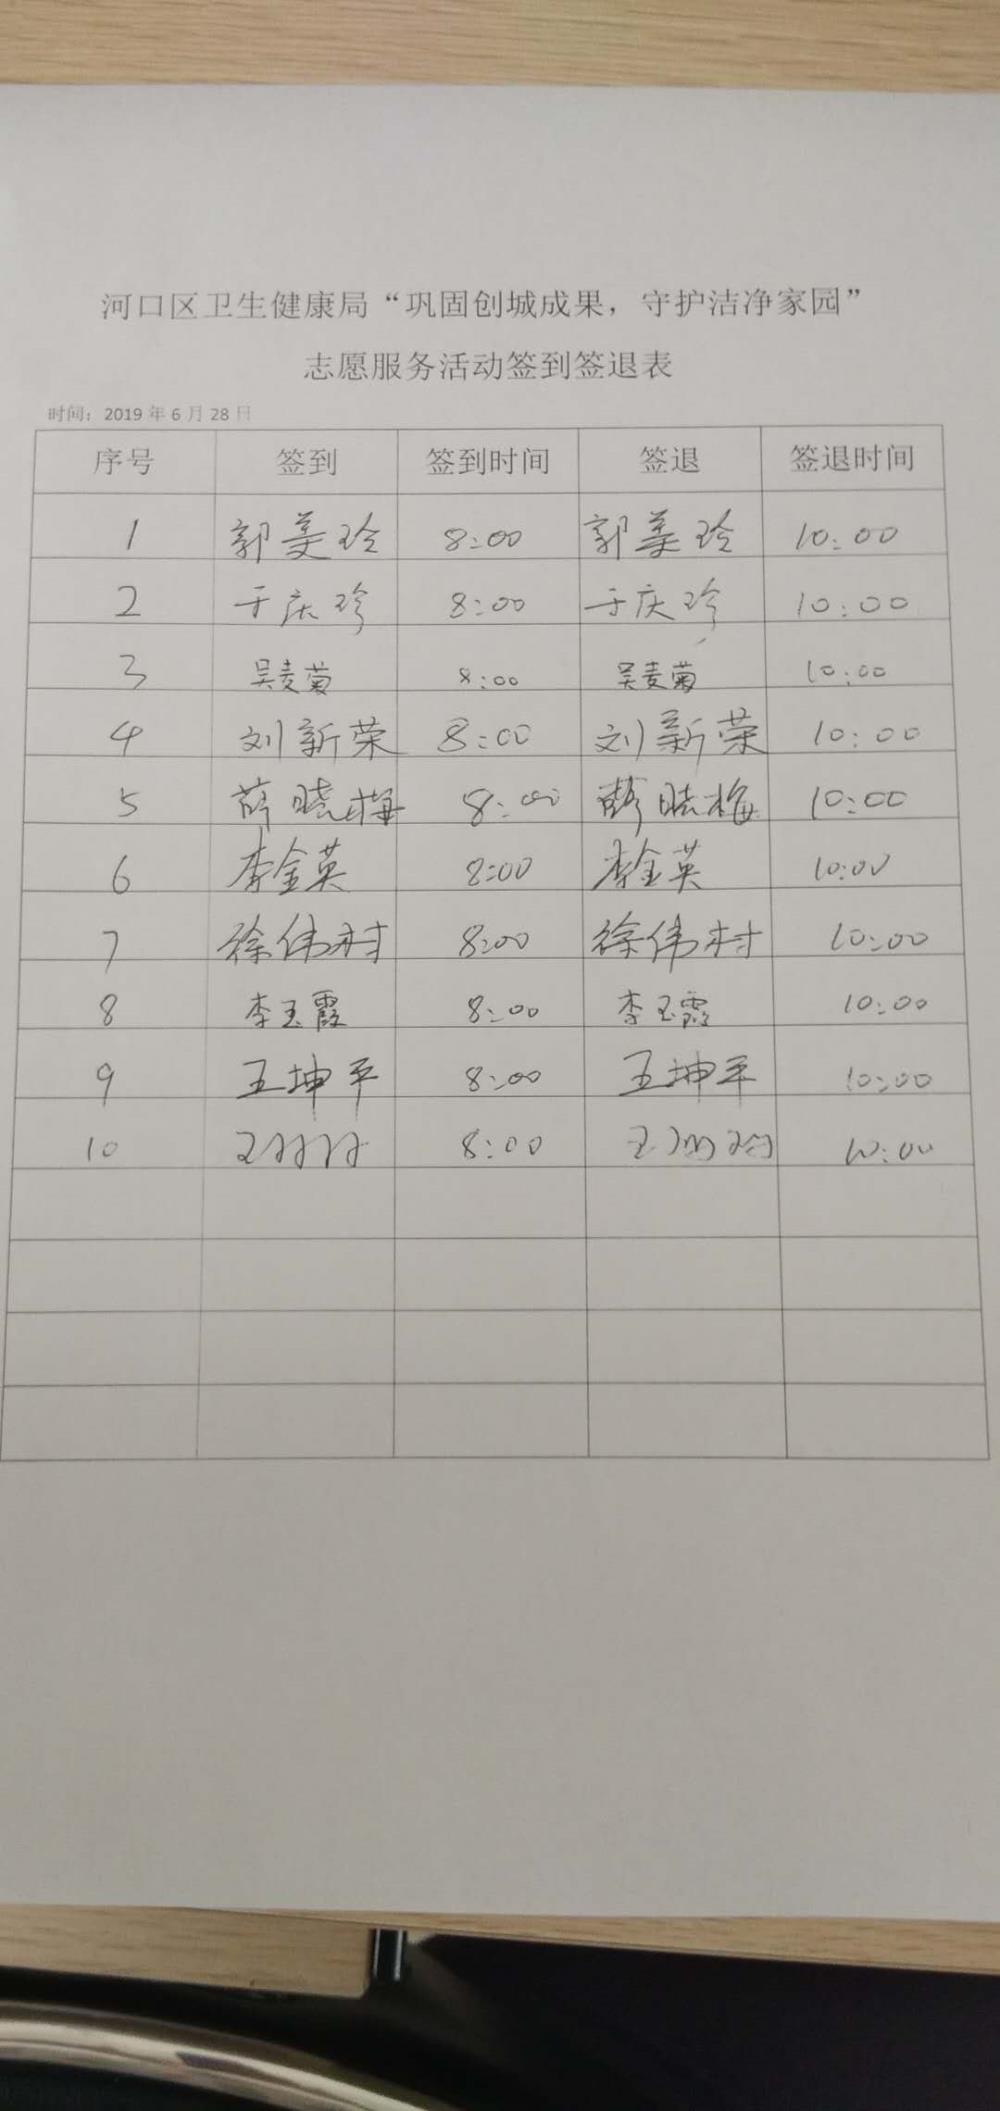 河口区卫生健康局“巩固创城成果，守护洁净家园”
志愿服务活动签到签退表
时间：2019年6月28日
序号 签到 签到时间 签退 签退时间
1 郭美玲 8:00 郭美玲 10:00
2 于庆珍 8:00 于庆珍 10:00
3 吴麦菊 8:00 吴麦菊 10:00
4 刘新荣 8:00 刘新荣 10:00
5 薛晓梅 8:00 薛晓梅 10:00
6 李金英 8:00 李金英 10:00
7 徐伟村 8:00 徐伟村 10:00
8 李玉霞 8:00 李玉霞 10:00
9 王坤平 8:00 王坤平 10:00
10 王 8:00 王 10:00